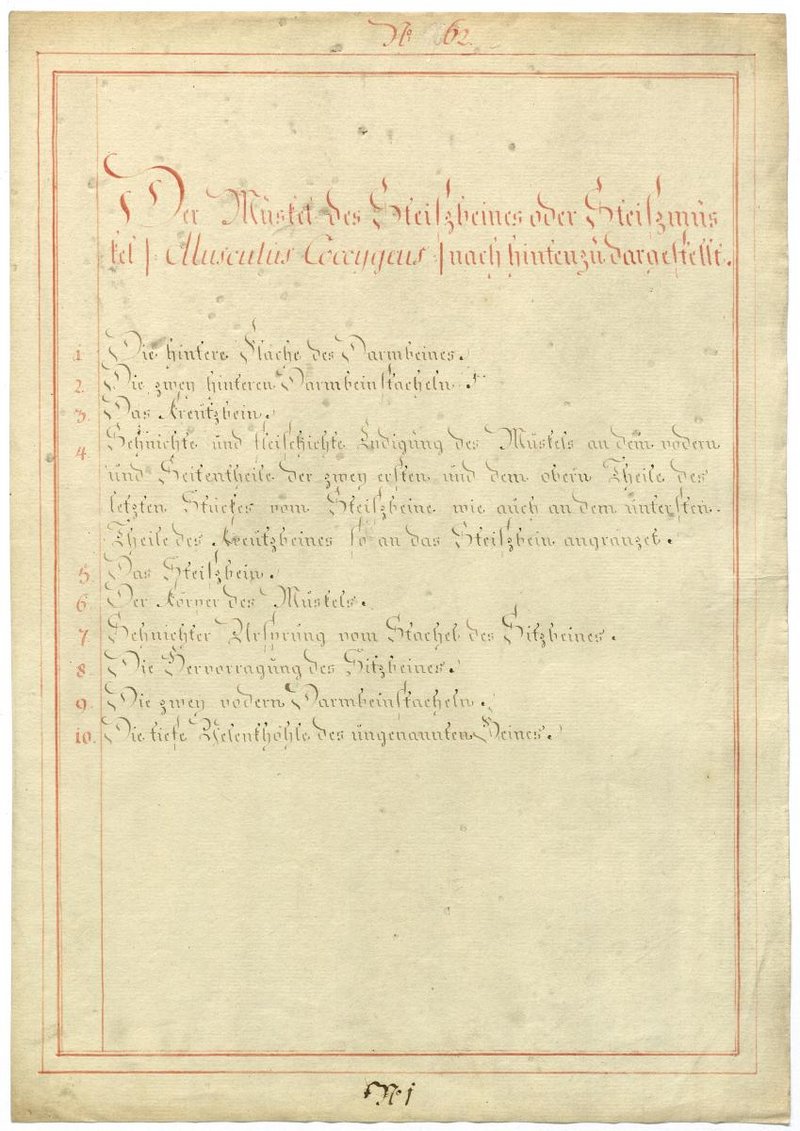 No 62.
Der Müskel des Steiszbeines oder Steiszmüs
kel |: Musculus Coccygeus :| nach hinten zü dargestellt.
1. Die hintere Fläche des Darmbeines.
2. Die zwey hinteren Darmbeinstacheln.
3. Das Kreützbein.
4. Sehnichte und fleischichte Endigüng des Müskels an dem vodern
und Seitentheile der zwey ersten und dem obern Theile des
letzten Stückes vom Steiszbeine wie auch an dem üntersten
Theile des Kreützbeines so an das Steiszbein angränzet.
5. Das Steiszbein.
6. Der Körper des Müskels.
7. Sehnichter Ursprüng vom Stachel des Sitzbeines.
8. Die Hervorragüng des Sitzbeines.
9. Die zwey vodern Darmbeinstacheln.
10. Die tiefe Gelenkhöhle des üngenannten Beines.
No 1